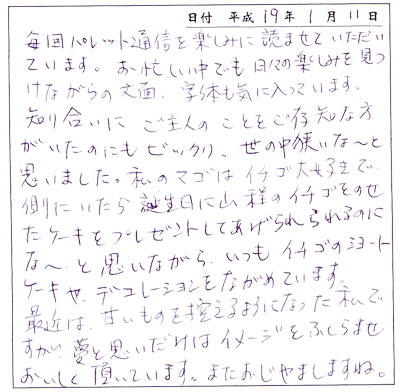 日付 平成 19 年 1 月 11 日
毎回パレット通信を楽しみに読ませていただい
ています。お忙しい中でも日々の楽しみを見つ
けながらの文面、字体も気に入っています。
知り合いに ご主人のことをご存知な方
がいたのにもビックリ、世の中狭いな〜と
思いました。私のマゴはイチゴ大好きで
側にいたら誕生日に山程のイチゴをのせ
たケーキをプレゼントしてあげられるのに
な〜と思いながら、いつもイチゴのショート
ケーキや、デコレーションをながめています。
最近は、甘いものを控えるようになった私で
すが、夢と思いだけはイメージをふくらませ
おいしく頂いています。またおじゃましますね。